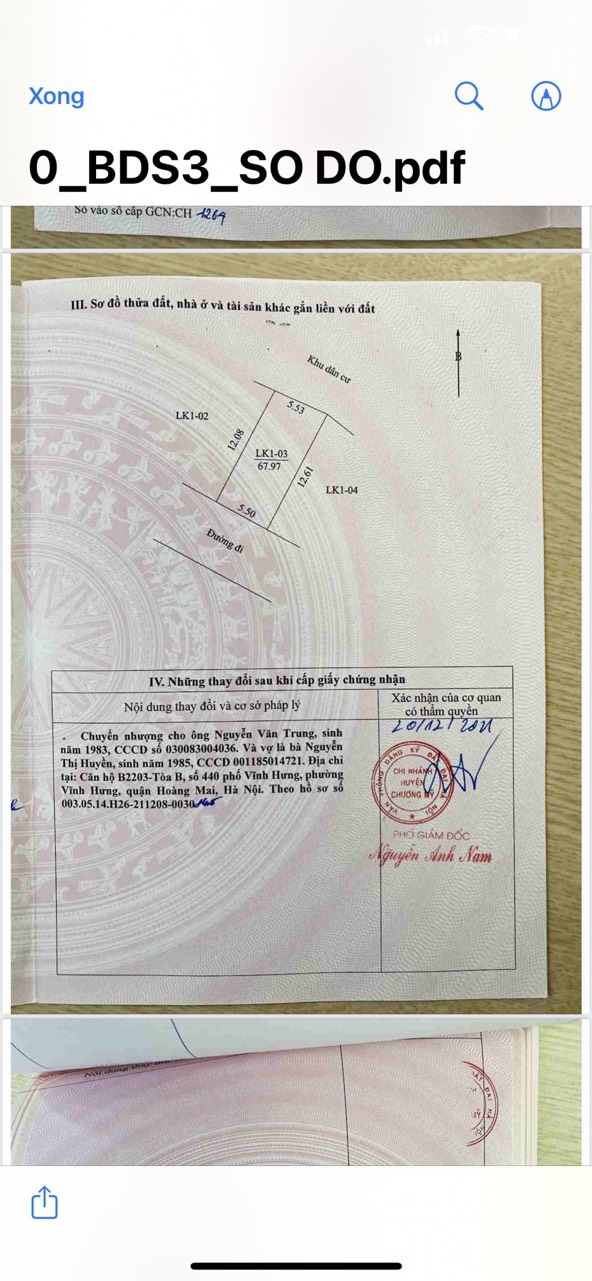 Xong
0_BDS3_SO DO.pdf
Số vào sổ cấp GCN:CH 1264
III. Sơ đồ thửa đất, nhà ở và tài sản khác gắn liền với đất
B
Khu dân cư
LK1-02
5.53
12.08
LK1-03
67.97
12.61
LK1-04
5.50
Đường đi
IV. Những thay đổi sau khi cấp giấy chứng nhận
Nội dung thay đổi và cơ sở pháp lý
Xác nhận của cơ quan
có thẩm quyền
Chuyển nhượng cho ông Nguyễn Văn Trung, sinh
năm 1983, CCCD số 030083004036. Và vợ là bà Nguyễn
Thị Huyền, sinh năm 1985, CCCD 001185014721. Địa chỉ
tại: Căn hộ B2203-Tòa B, số 440 phố Vĩnh Hưng, phường
Vĩnh Hưng, quận Hoàng Mai, Hà Nội. Theo hồ sơ số
003.05.14.H26-211208-0030
20/12/2021
VĂN PHÒNG ĐĂNG KÝ ĐẤT ĐAI HÀ NỘI
CHI NHÁNH
HUYỆN
CHƯƠNG MỸ
PHÓ GIÁM ĐỐC
Nguyễn Anh Nam
Nội dung thay đổi